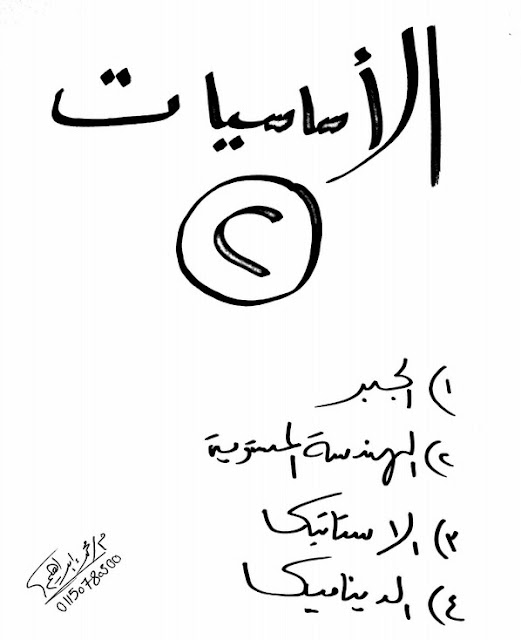 الأساسيات
٢
١) الجبر
٢) الهندسة المستوية
٣) الاستاتيكا
٤) الديناميكا
م/ محمد ابراهيم
01150780500